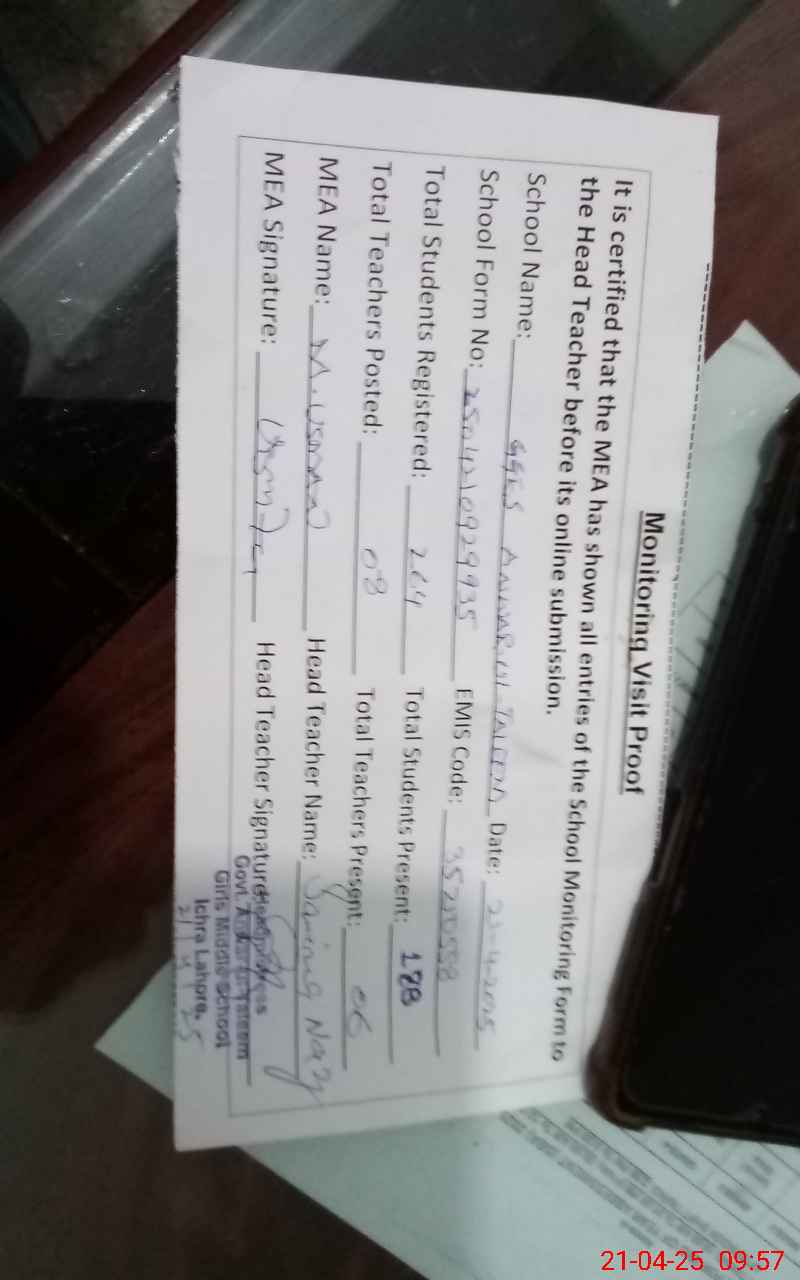 Monitoring Visit Proof
It is certified that the MEA has shown all entries of the School Monitoring Form to
the Head Teacher before its online submission.
School Name: GGES ANWAR UL TALEEM Date: 21-4-2025
School Form No: 250421092993S EMIS Code: 35210558
Total Students Registered: 264 Total Students Present: 178
Total Teachers Posted: 08 Total Teachers Present: 06
MEA Name: M. USMAN Head Teacher Name: Naz
MEA Signature: Head Teacher Signature:
Headmistress
Govt. Anwar-ul-Taleem
Girls Middle School
Ichra Lahore.
21/4/25
21-04-25 09:57